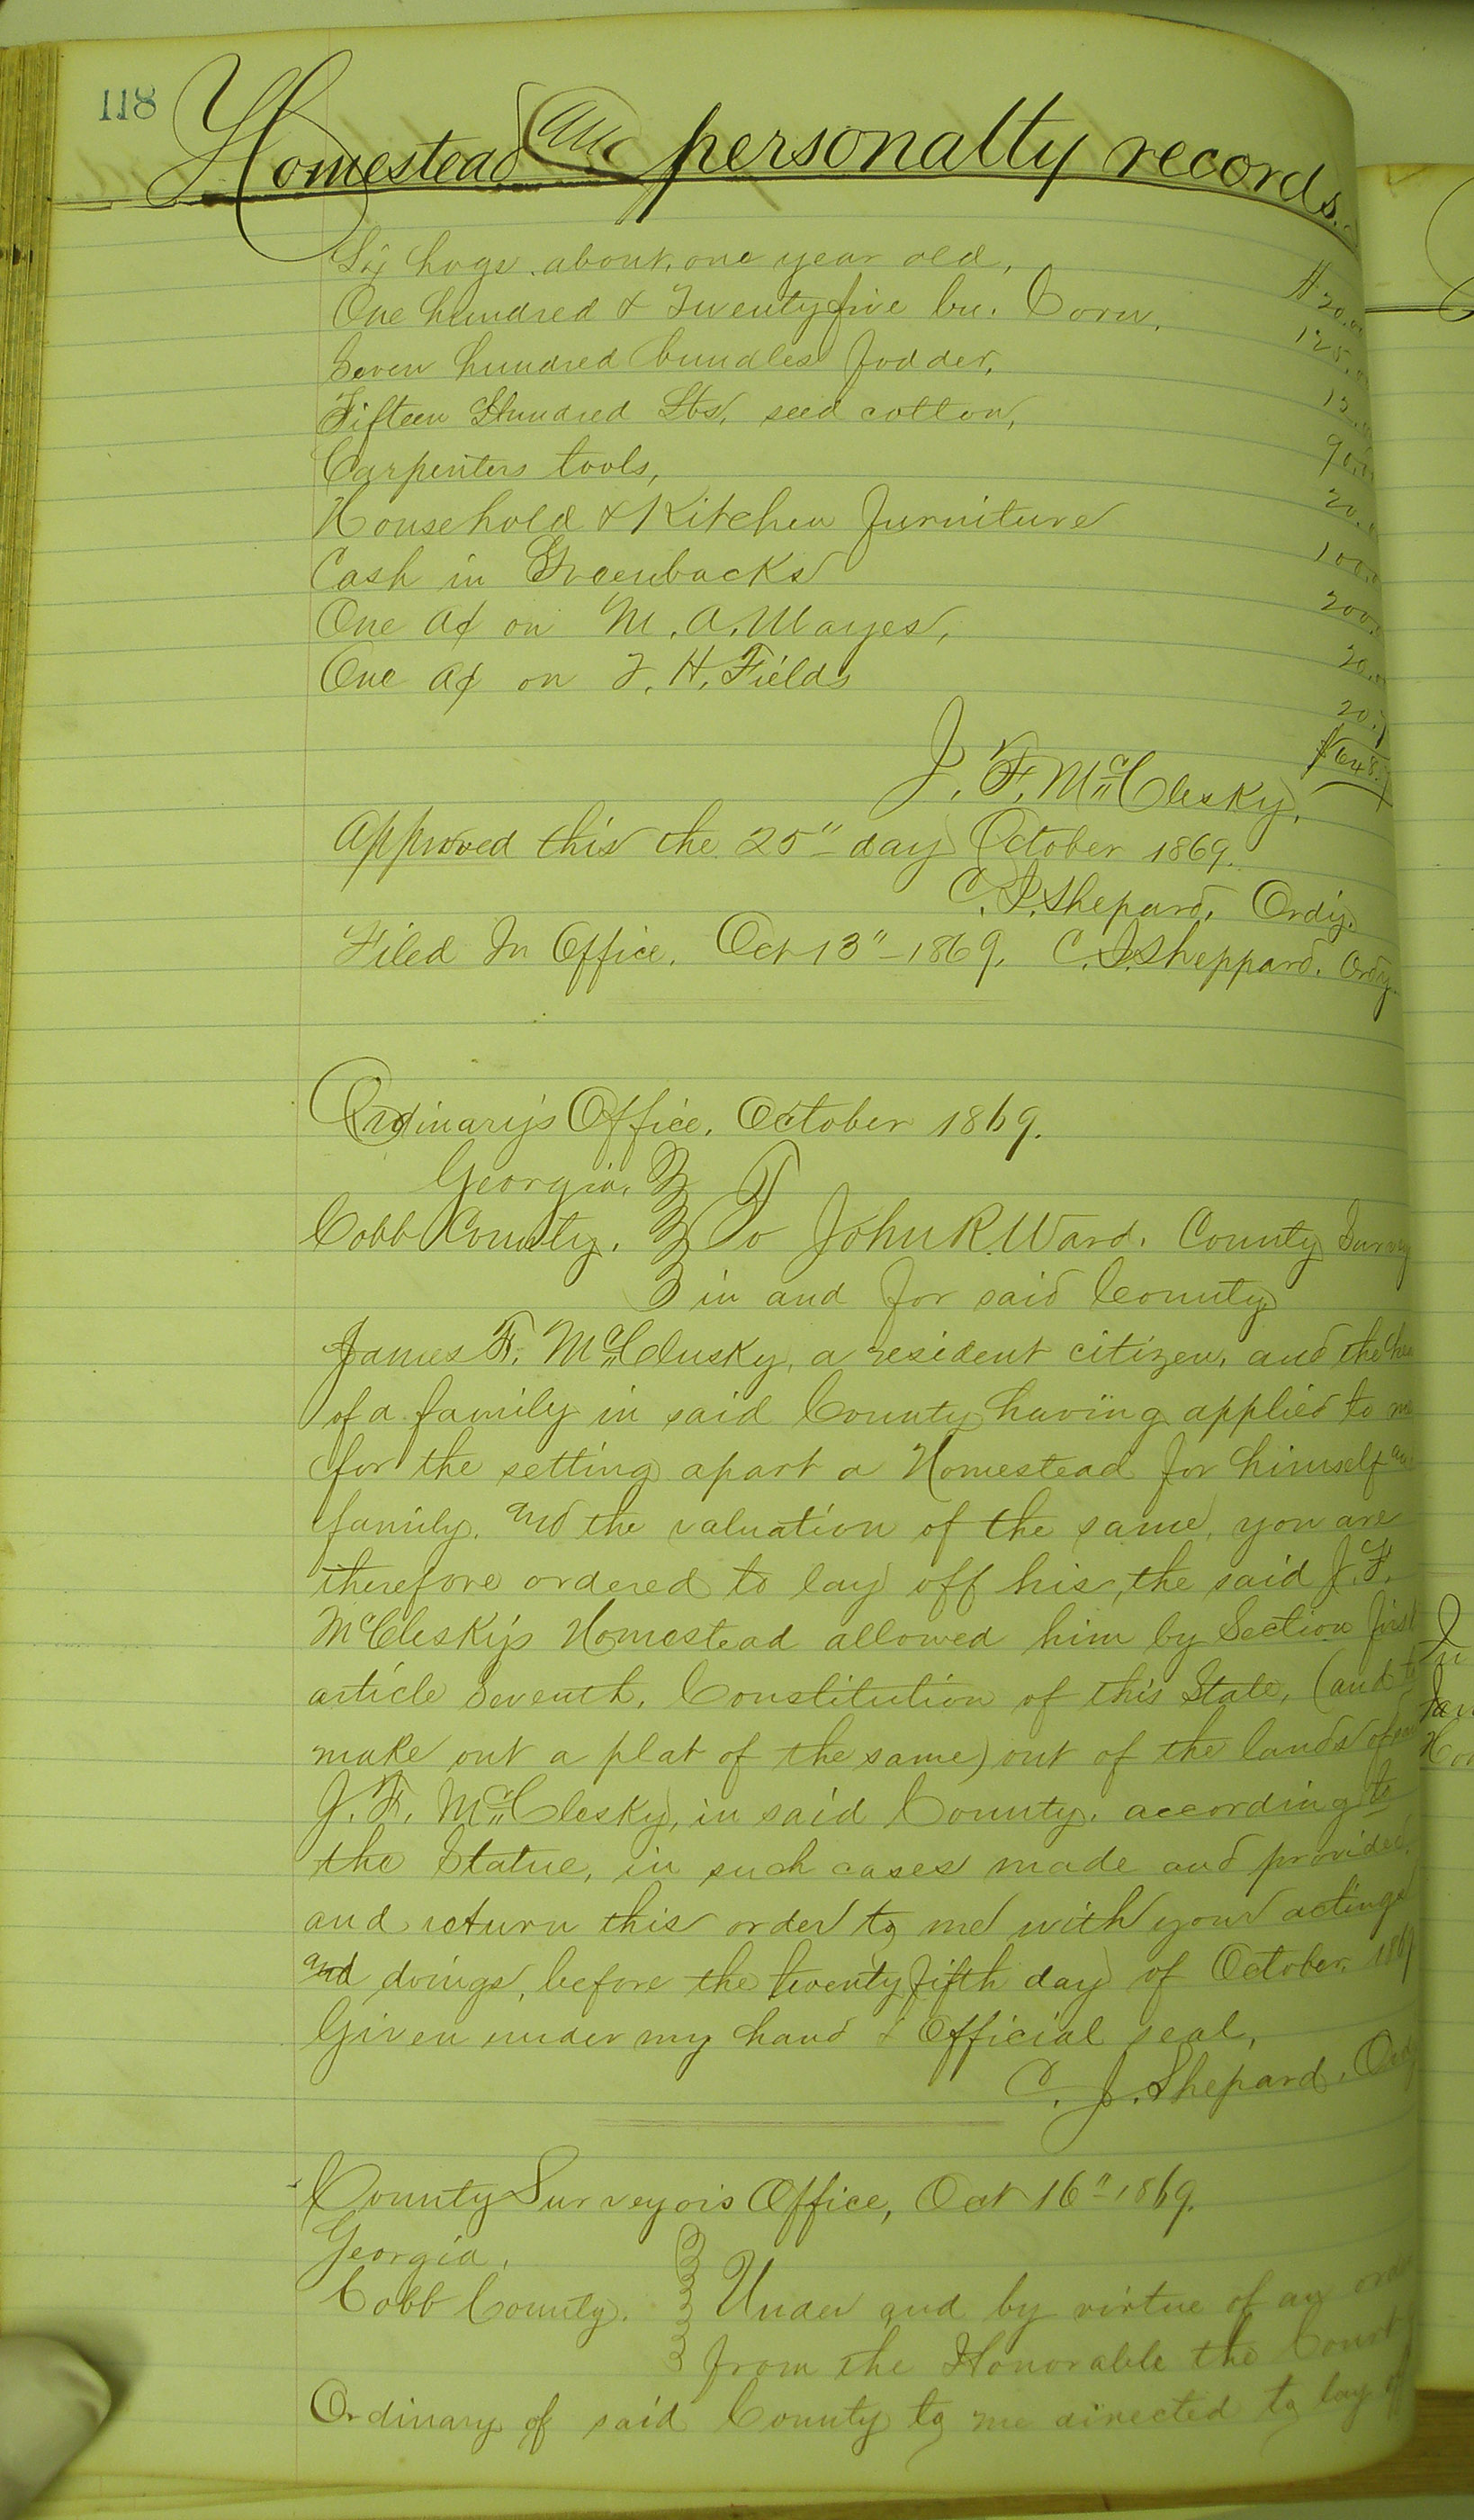 118
Homestead and personalty records.
Six hogs about one year old, $20.00
One hundred & Twenty five bu. Corn, 125.
Seven hundred bundles fodder,
Fifteen Hundred Lbs, seed cotton, 90.
Carpenters tools, 20.
Household & Kitchen furniture 100.
Cash in Greenbacks 200.
One a/c on M. A. Mayes, 20.
One a/c on F. H. Fields 20.
J. F. McClesky, $648.
Approved this the 25" day October 1869.
C. J. Shepard, Ordy.
Filed In Office, Oct 13" 1869, C. J. Sheppard, Ordy.
Ordinary's Office, October 1869.
Georgia,
Cobb County. To John R. Ward. County Survey
in and for said County
James F. McClusky, a resident citizen, and the hea
of a family in said County having applied to me
for the setting apart a Homestead for himself and
family, and the valuation of the same, you are
therefore ordered to lay off his, the said J. F.
McClesky's Homestead allowed him by Section first
article Seventh, Constitution of this State, (and to
make out a plat of the same) out of the lands of said
J. F. McClesky, in said County. according to
the Statue, in such cases made and provided,
and return this order to me with your actings
and doings, before the twenty fifth day of October, 1869
Given under my hand & Official seal,
C. J. Shepard, Ordy
County Surveyors Office, Oct 16" 1869.
Georgia,
Cobb County. Under and by virtue of an order
from the Honorable the Court
Ordinary of said County to me directed to lay off